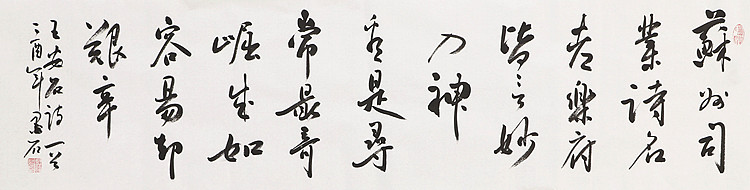 蘇州司
業詩名
老樂府
皆言妙
入神
看是尋
常最奇
崛成如
容易却
艱辛
王安石詩一首
酉年 石